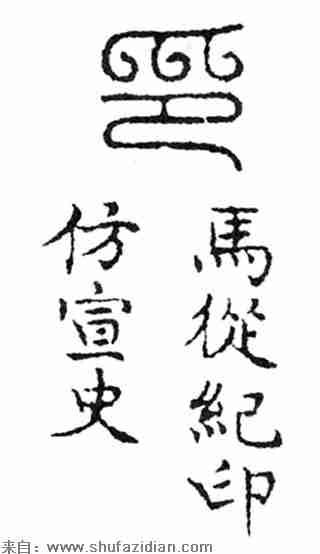 印
馬從紀印
仿宣史
来自：www.shufazidian.com